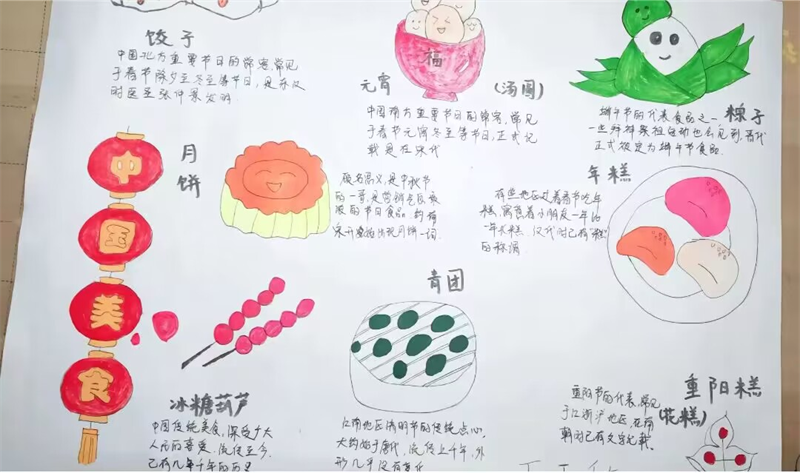 饺子
中国北方重要节日的常客常见
于春节除夕立冬至等节日,是东汉
时医圣张仲景发明
福
元宵
(汤圆)
中国南方重要节日的常客,常见
于春节元宵冬至等节日,正式记
载是在宋代
粽子
端午节的代表食品之一
一些拜神祭祖
正式被定为端午节食品.
中国美食
月饼
顾名思义,是中秋节
的节日食品
月饼一词
年糕
有些地区过着春节吃年
糕,寓意着小朋友一年比
一年长高.汉代时已有"糕"
的称谓
冰糖葫芦
中国传统美食,深受广大
人民的喜爱,流传至今.
已有几千年的历史
青团
江南地区清明节的传统点心,
大约始于唐代,流传上千年,外
形几乎没有变化
重阳糕
(花糕)
重阳节的代表,常见
于江浙沪地区,在南
朝时已有文字记载.